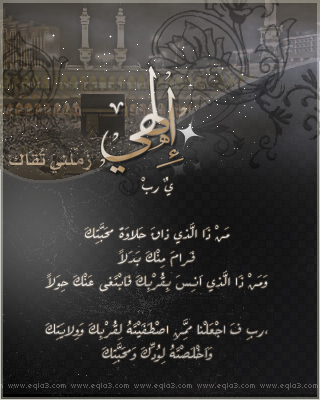 إلهي
زملني تُقاك
يَ ربْ
مَنْ ذَا الَّذي ذَاقَ حَلاوَةَ مَحَبَّتِكَ
فَرامَ مِنْكَ بَدَلاً
وَمَنْ ذَا الَّذي اَنِسَ بِقُرْبِكَ فَابْتَغى عَنْكَ حِوَلاً
ربِ فَ اجْعَلْنا مِمَّنِ اصْطَفَيْتَهُ لِقُرْبِكَ وَوِلايَتِكَ،
وَاَخْلَصْتَهُ لِوُدِّكَ وَمَحَبَّتِكَ
www.eqla3.com www.eqla3.com www.eqla3.com www.eqla3.com www.eqla3.com